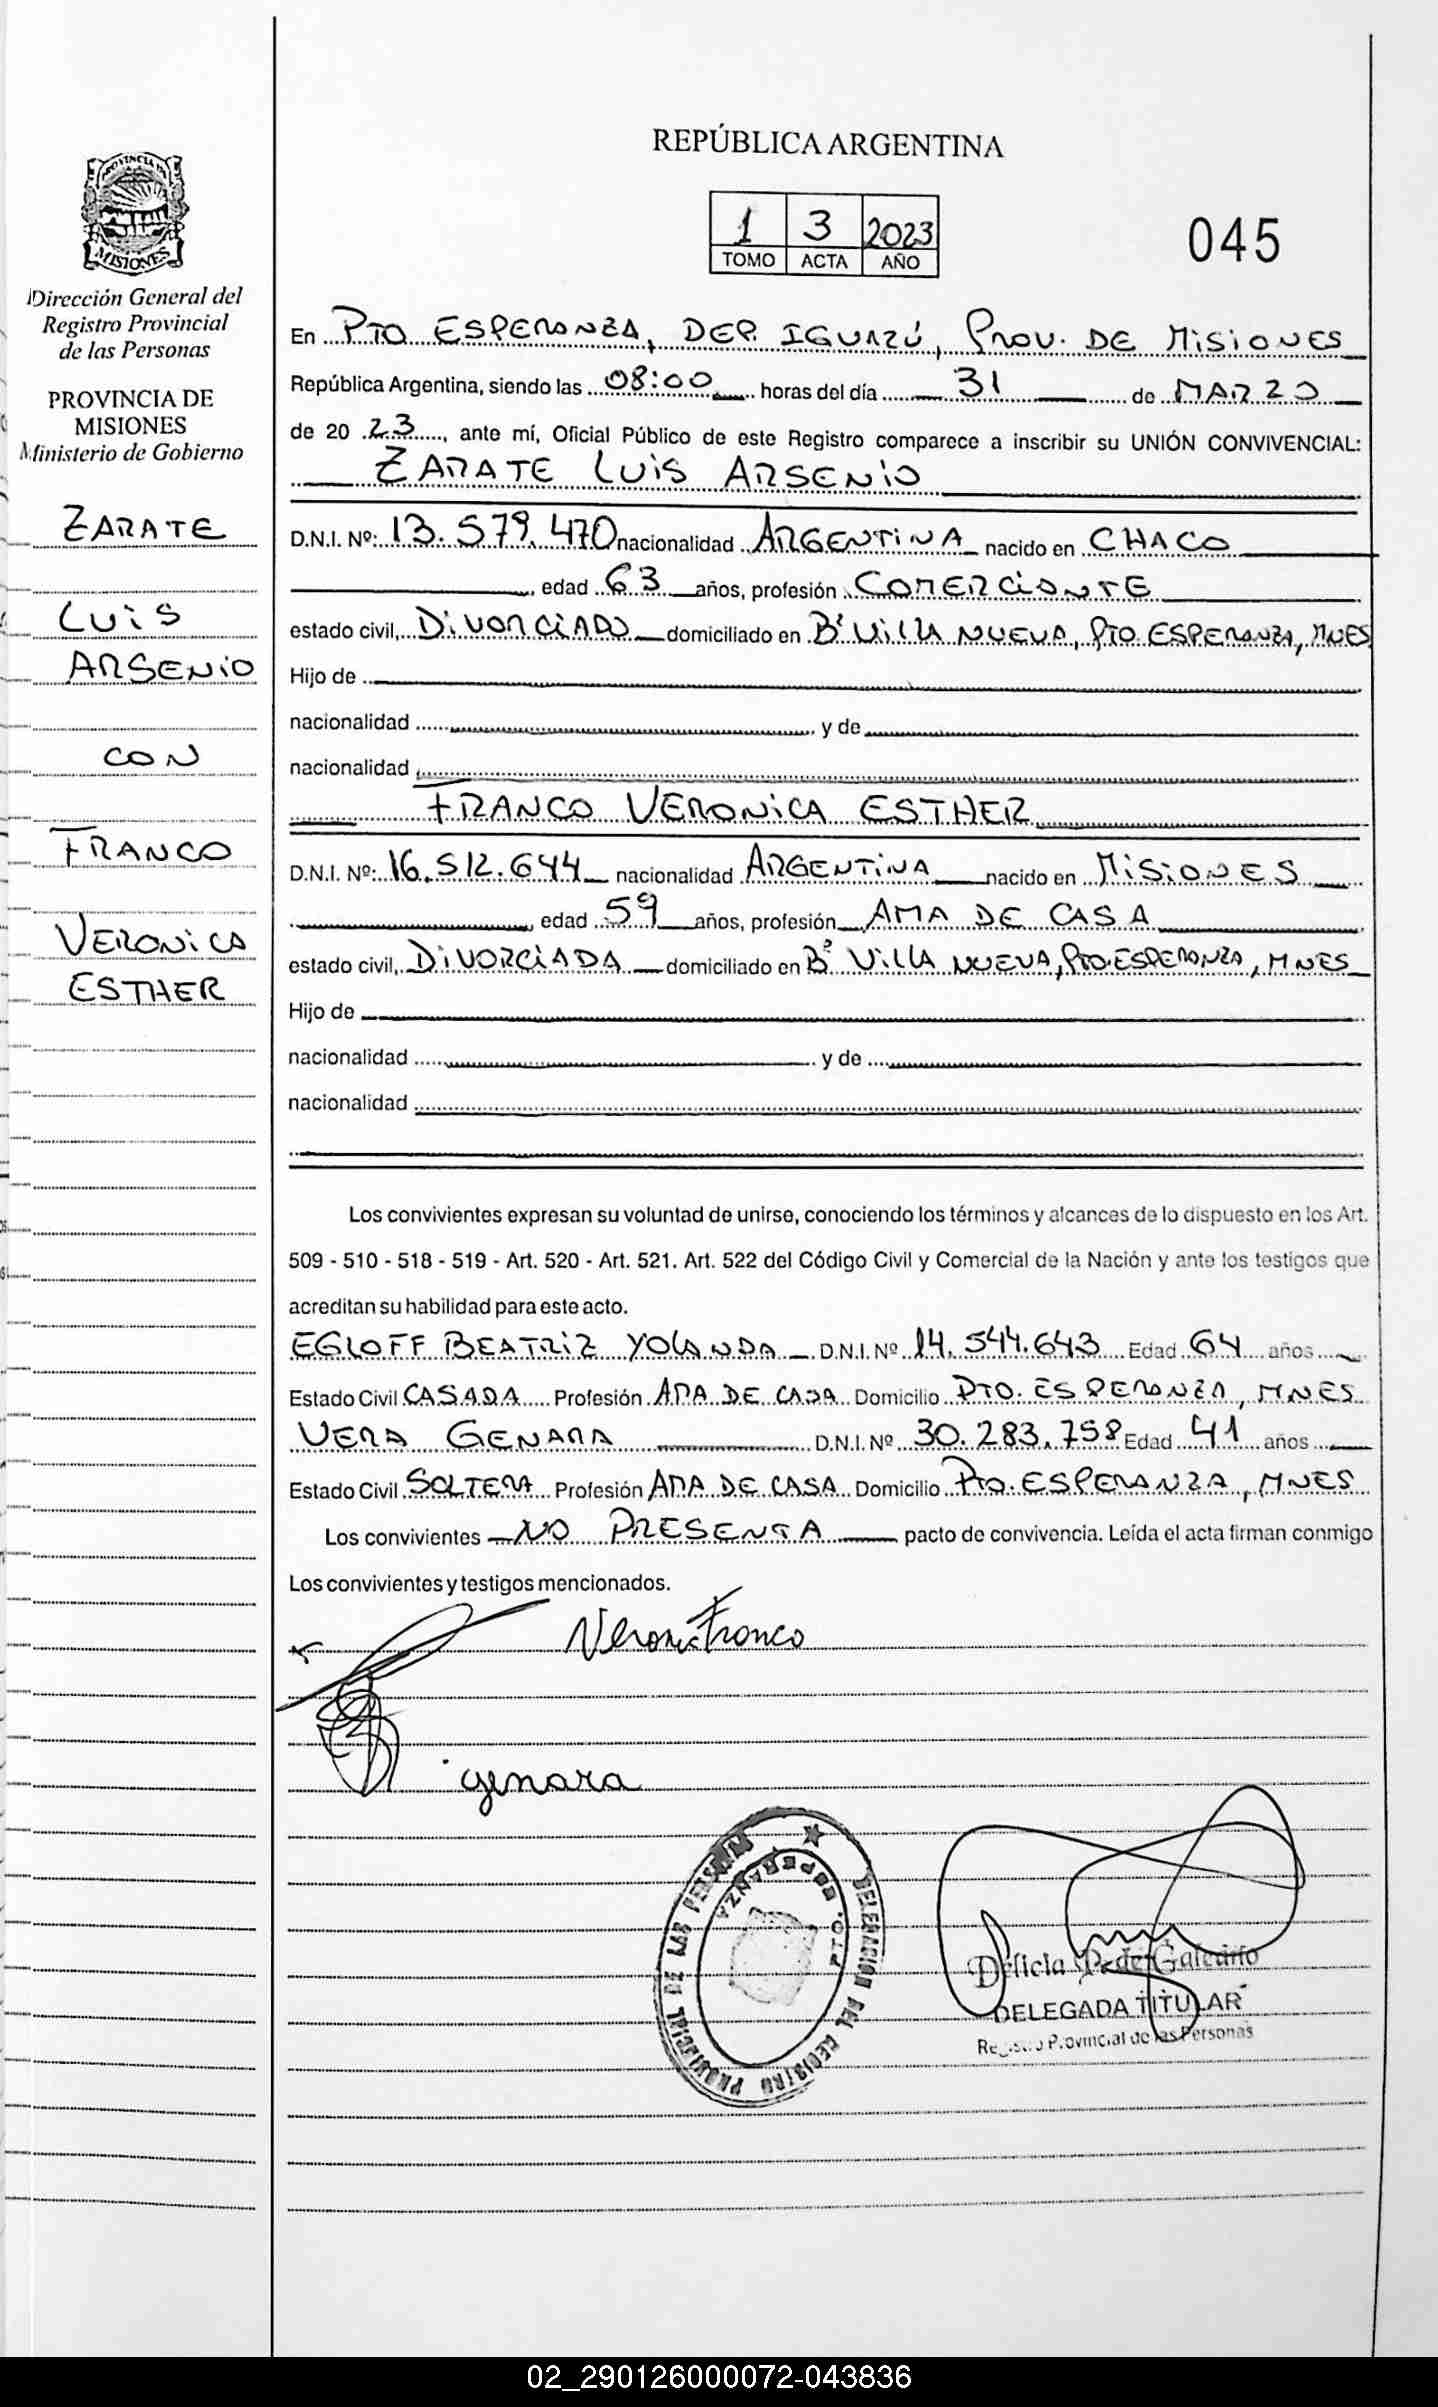 REPÚBLICA ARGENTINA
1 3 2023
TOMO ACTA AÑO
045
PROVINCIA DE
MISIONES
Dirección General del
Registro Provincial
de las Personas
PROVINCIA DE
MISIONES
Ministerio de Gobierno
ZARATE
LUIS
ARSENIO
CON
FRANCO
VERONICA
ESTHER
En PTO ESPERANZA, DEP. IGUAZÚ, PROV. DE MISIONES
República Argentina, siendo las 08:00 horas del día 31 de MARZO
de 20 23, ante mí, Oficial Público de este Registro comparece a inscribir su UNIÓN CONVIVENCIAL:
ZARATE LUIS ARSENIO
D.N.I. Nº: 13.579.470 nacionalidad ARGENTINA nacido en CHACO
, edad 63 años, profesión COMERCIANTE
estado civil, DIVORCIADO domiciliado en Bº VILLA NUEVA, PTO. ESPERANZA, MNES
Hijo de
nacionalidad y de
nacionalidad
FRANCO VERONICA ESTHER
D.N.I. Nº: 16.512.644 nacionalidad ARGENTINA nacido en MISIONES
, edad 59 años, profesión AMA DE CASA
estado civil, DIVORCIADA domiciliado en Bº VILLA NUEVA, PTO. ESPERANZA, MNES
Hijo de
nacionalidad y de
nacionalidad
Los convivientes expresan su voluntad de unirse, conociendo los términos y alcances de lo dispuesto en los Art.
509 - 510 - 518 - 519 - Art. 520 - Art. 521. Art. 522 del Código Civil y Comercial de la Nación y ante los testigos que
acreditan su habilidad para este acto.
EGLOFF BEATRIZ YOLANDA D.N.I. Nº 14.544.643 Edad 64 años
Estado Civil CASADA Profesión AMA DE CASA Domicilio PTO. ESPERANZA, MNES
VERA GENARA D.N.I. Nº 30.283.758 Edad 41 años
Estado Civil SOLTERA Profesión AMA DE CASA Domicilio PTO. ESPERANZA, MNES
Los convivientes NO PRESENTA pacto de convivencia. Leída el acta firman conmigo
Los convivientes y testigos mencionados.
Veronica Franco
genara
DELEGACION DEL REGISTRO PROVINCIAL DE LAS PERSONAS
PTO. ESPERANZA
Delicia P. de Galeano
DELEGADA TITULAR
Registro Provincial de las Personas
02_290126000072-043836